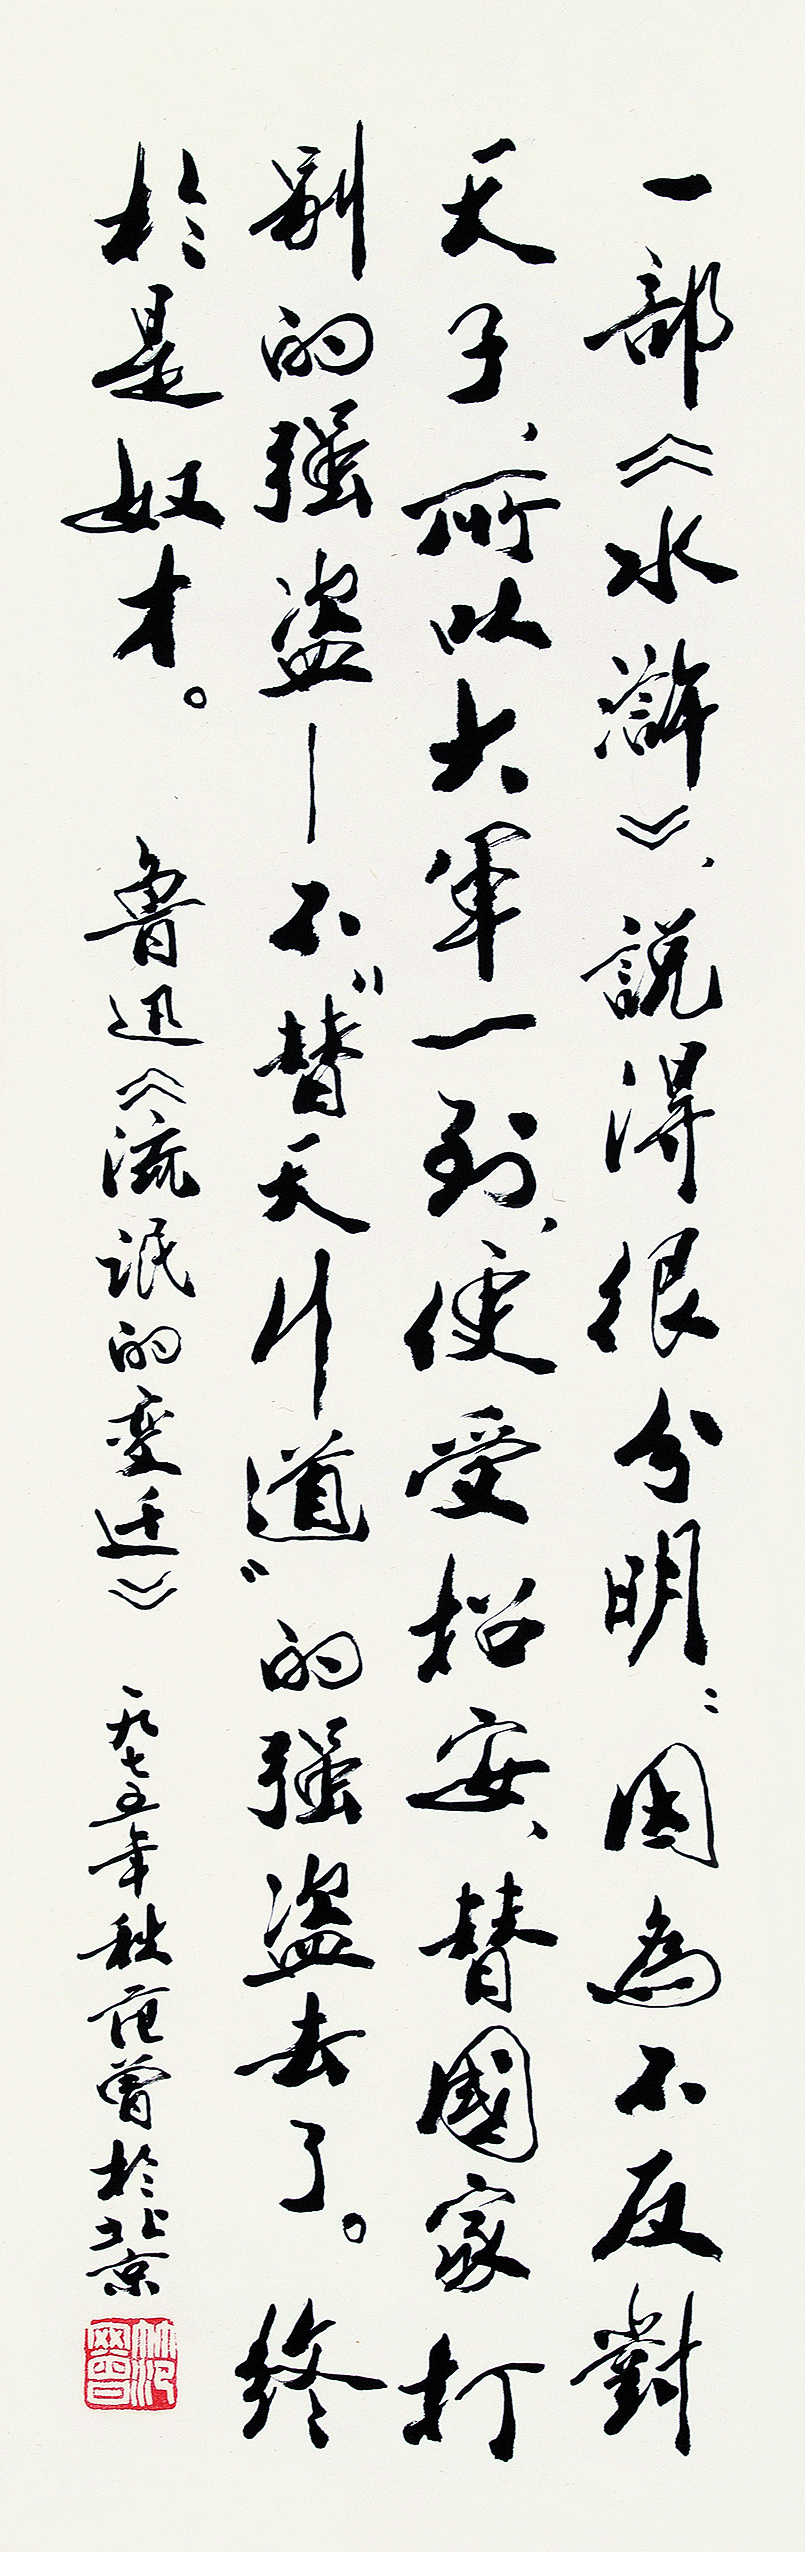 一部《水滸》，說得很分明：因為不反對
天子，所以大軍一到，便受招安，替國家打
別的強盜—不“替天行道”的強盜去了。終
於是奴才。 魯迅《流氓的變迁》 一九七五年秋范曾於北京
范曾